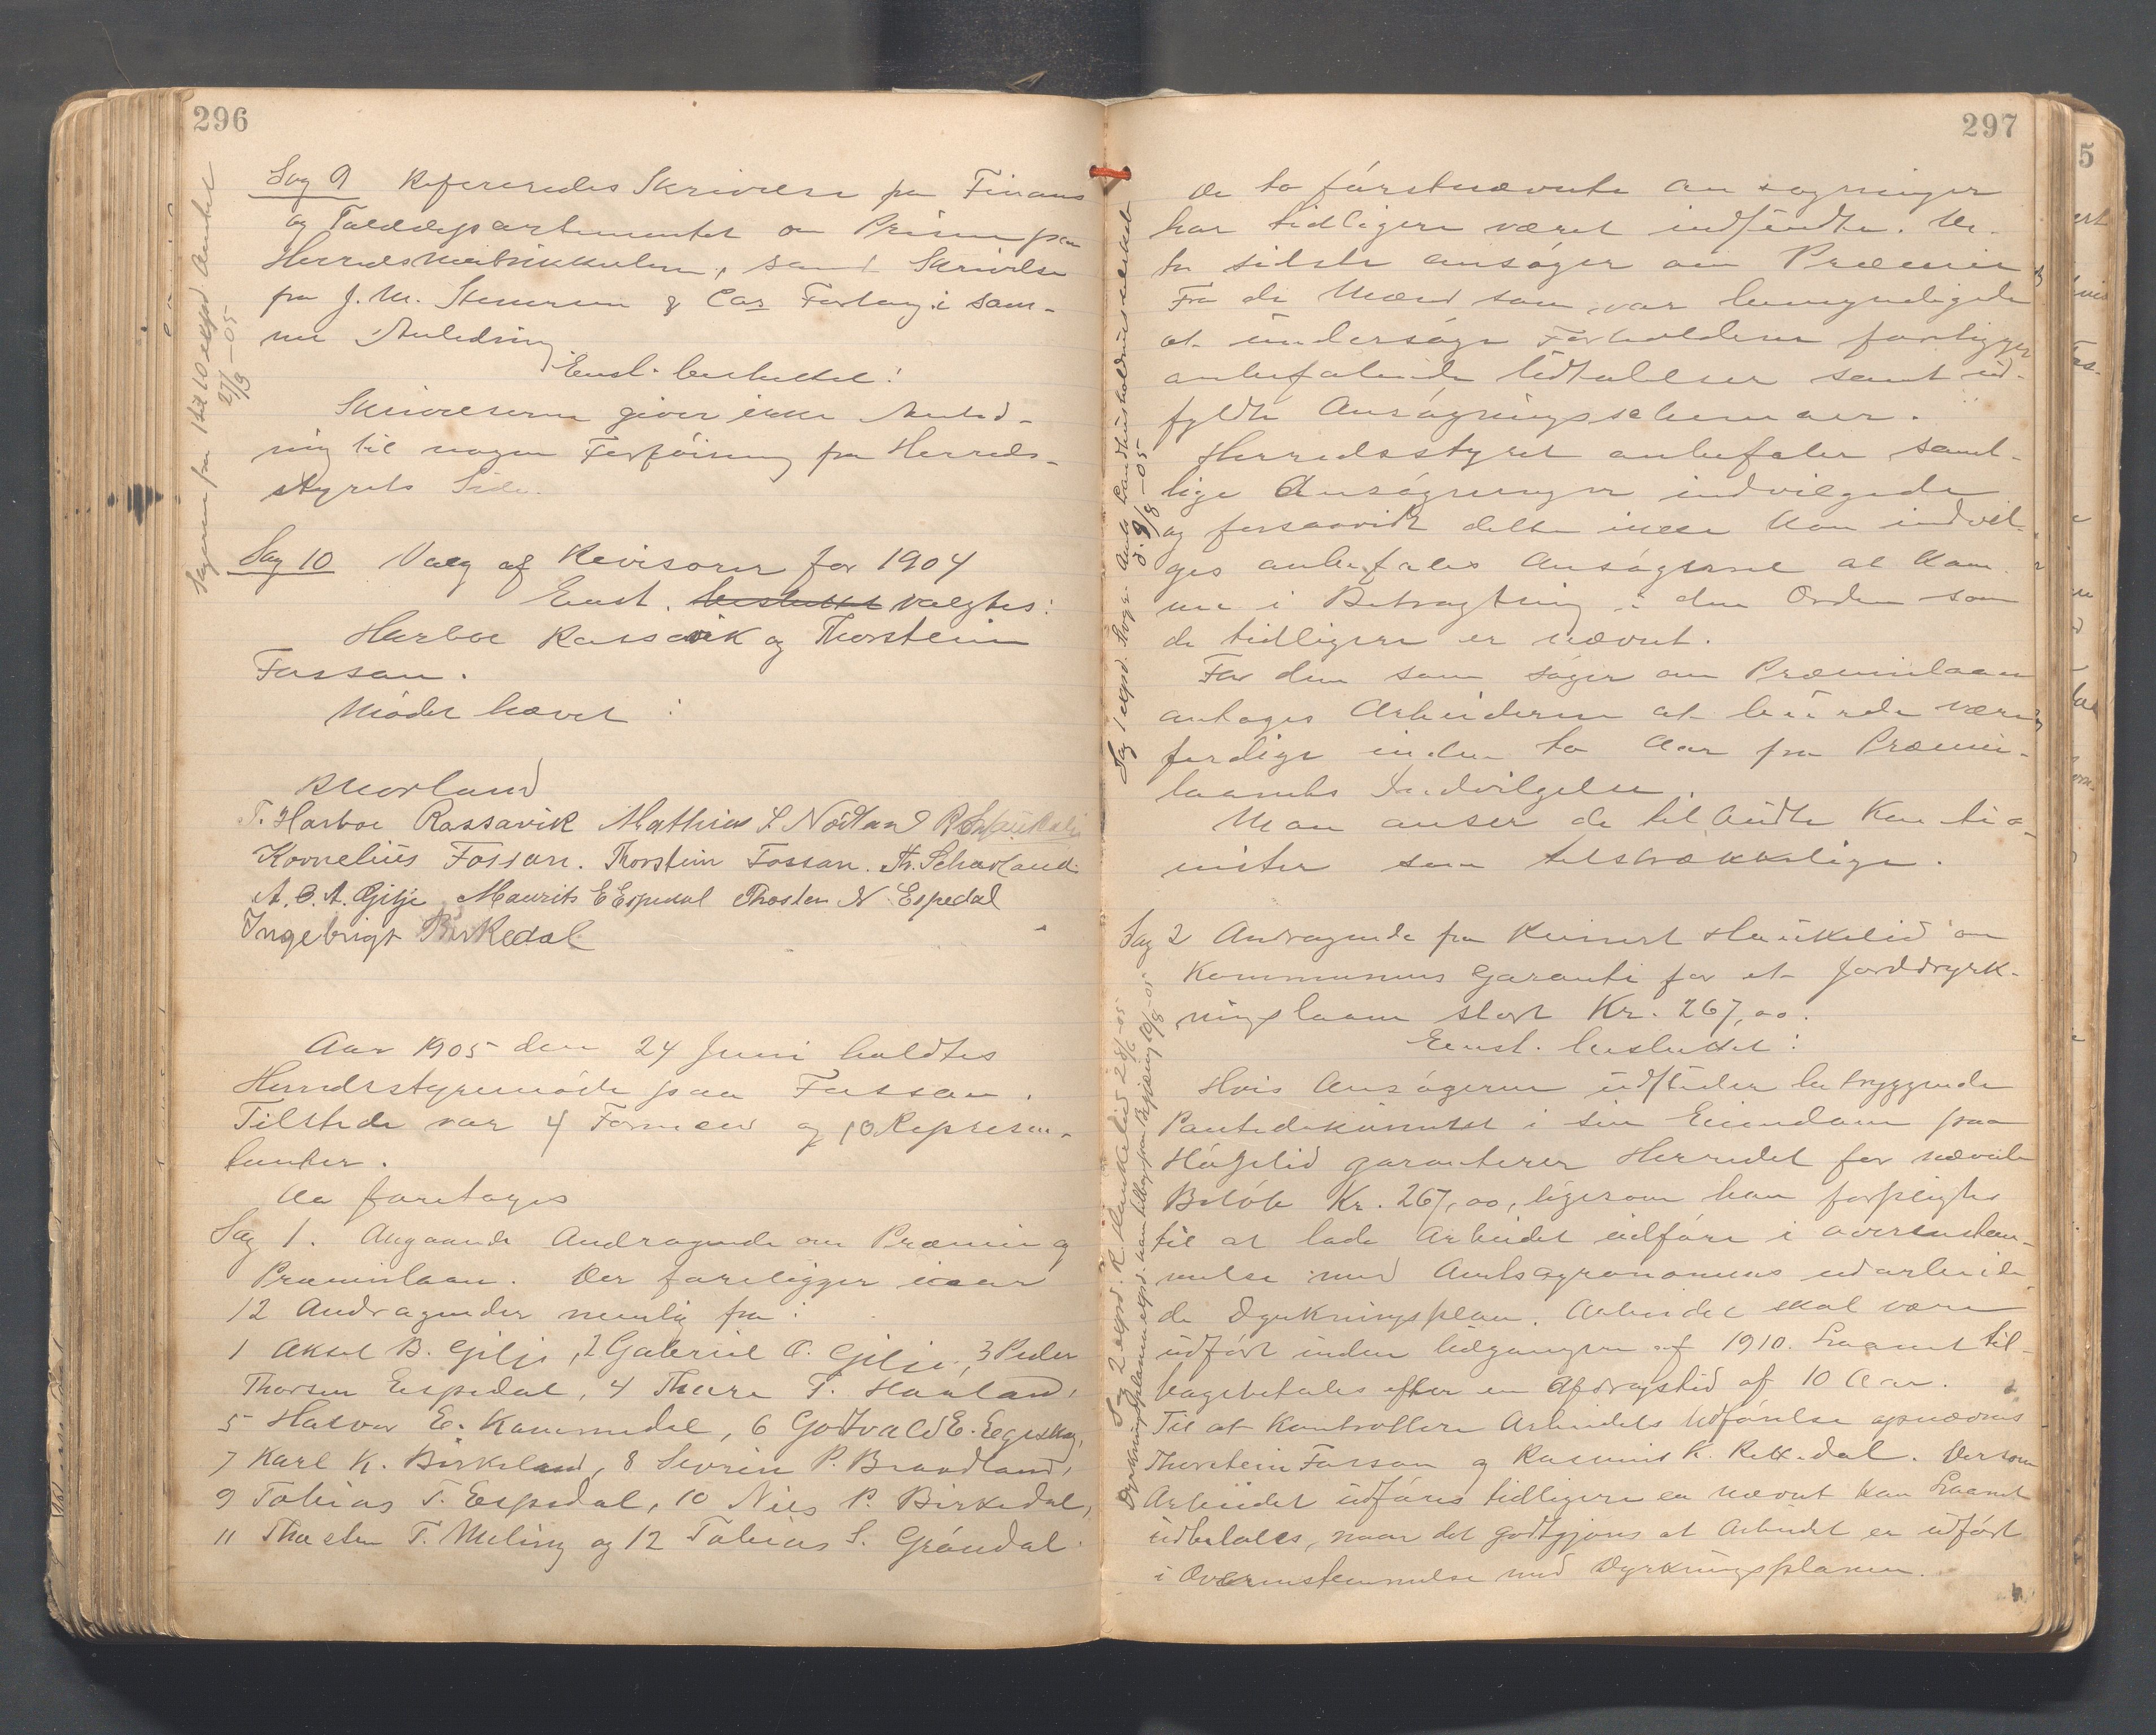 296
Sagerne fra 1 til 10 exspd. Amtet
27/3 - 05
Sag 9 Refereredes Skrivelse fra Finans
og Tolddepartementet om Prisen paa
Herredsmatrikkulen, samt Skrivelse
fra J. M. Stenersen & Cos Forlag i sam-
me Anledning
Enst. besluttet:
Skrivelserne giver ikke Anled-
ning til nogen Forføining fra Herreds-
styrets Side.
Sag 10 Valg af Revisorer for 1904
Enst. besluttet valgtes:
Harboe Rassavik og Thorstein
Fossan.
Mødet hævet:
T. Harboe Rassavik Mathias S. Nodland
Kornelius Fossan. Thorstein Fossan.
A. B. A. Gilje Maurits E Espedal Thosten N Espedal
Ingebrigt Birkedal
Aar 1905 den 24 Juni holdtes
Herredstyremøde paa Fossan.
Tilstede var 4 Formænd og 10 Represen-
tanter.
Da foretoges
Sag 1. Angaaende Andragende om Præmie og
Præmielaan. Der foreligger iaar
12 Andragender nemlig fra:
1 Aksel B. Gilje, 2 Gabriel O. Gilje, 3 Peder
Thorsen Espedal, 4 Thore T. Haaland,
5 Halvor E. Kommedal, 6 Godtvald E. Egeskog,
7 Karl K. Birkeland, 8 Sevrin P. Brandland,
9 Tobias T. Espedal, 10 Nils P. Birkedal,
11 Thosten T. Meling og 12 Tobias S. Grøndal.
297
Sag 1 exspd. Amts Landhusholdningselskab
d. 9/8 - 05
De to førstnævnte ansøgninger
har tidligere været indsendte. De
to sidste ansøger om Præmie
Fra de Mænd som var bemyndigede
at undersøge Forholdene foreligger
anbefalende Udtalelser samt ud-
fyldte Ansøgningsschemaer.
Herredsstyret anbefaler samt-
lige Ansøgninger indvilgede
og forsaavidt dette ikke kan indvil-
ges anbefales Ansøgerne at kom-
me i Betragtning i den Orden som
de tidligere er nævnt.
For dem som søger om Præmielaan
antages Arbeiderne at burde være
ferdige inden to Aar fra Præmie-
laanets Indvilgelse.
Man anser de tilbudte Kautio-
nister som tilstrækkelige.
Sag 2 Andragende fra Reinert Haukelid om
Kommunens Garanti for et Jorddyrk-
ningslaan stort Kr. 267,00.
Enst. besluttet:
Hvis Ansøgeren udsteder betryggende
Pantedokument i sin Eiendom paa
Høgelid garanterer Herredet for nævnte
Beløb Kr. 267,00, ligesom han forpligtes
til at lade Arbeidet udføre i overensstem-
melse med Amtsagronomens udarbeide-
de Dyrkningsplan. Arbeidet skal være
udført inden Udgangen af 1910. Laanet til-
bagebetales efter en Afdragstid af 10 Aar.
Til at kontrollere Arbeidets Udførelse opnævnes
Thorstein Fossan og Rasmus K. Rettedal. Dersom
Arbeidet udføres tidligere en nævnt kan Laanet
udbetales, naar det godtgjøres at Arbeidet er udført
i Overensstemmelse med Dyrkningsplanen.
Sag 2 exspd. R. Haukelid 28/6 - 05